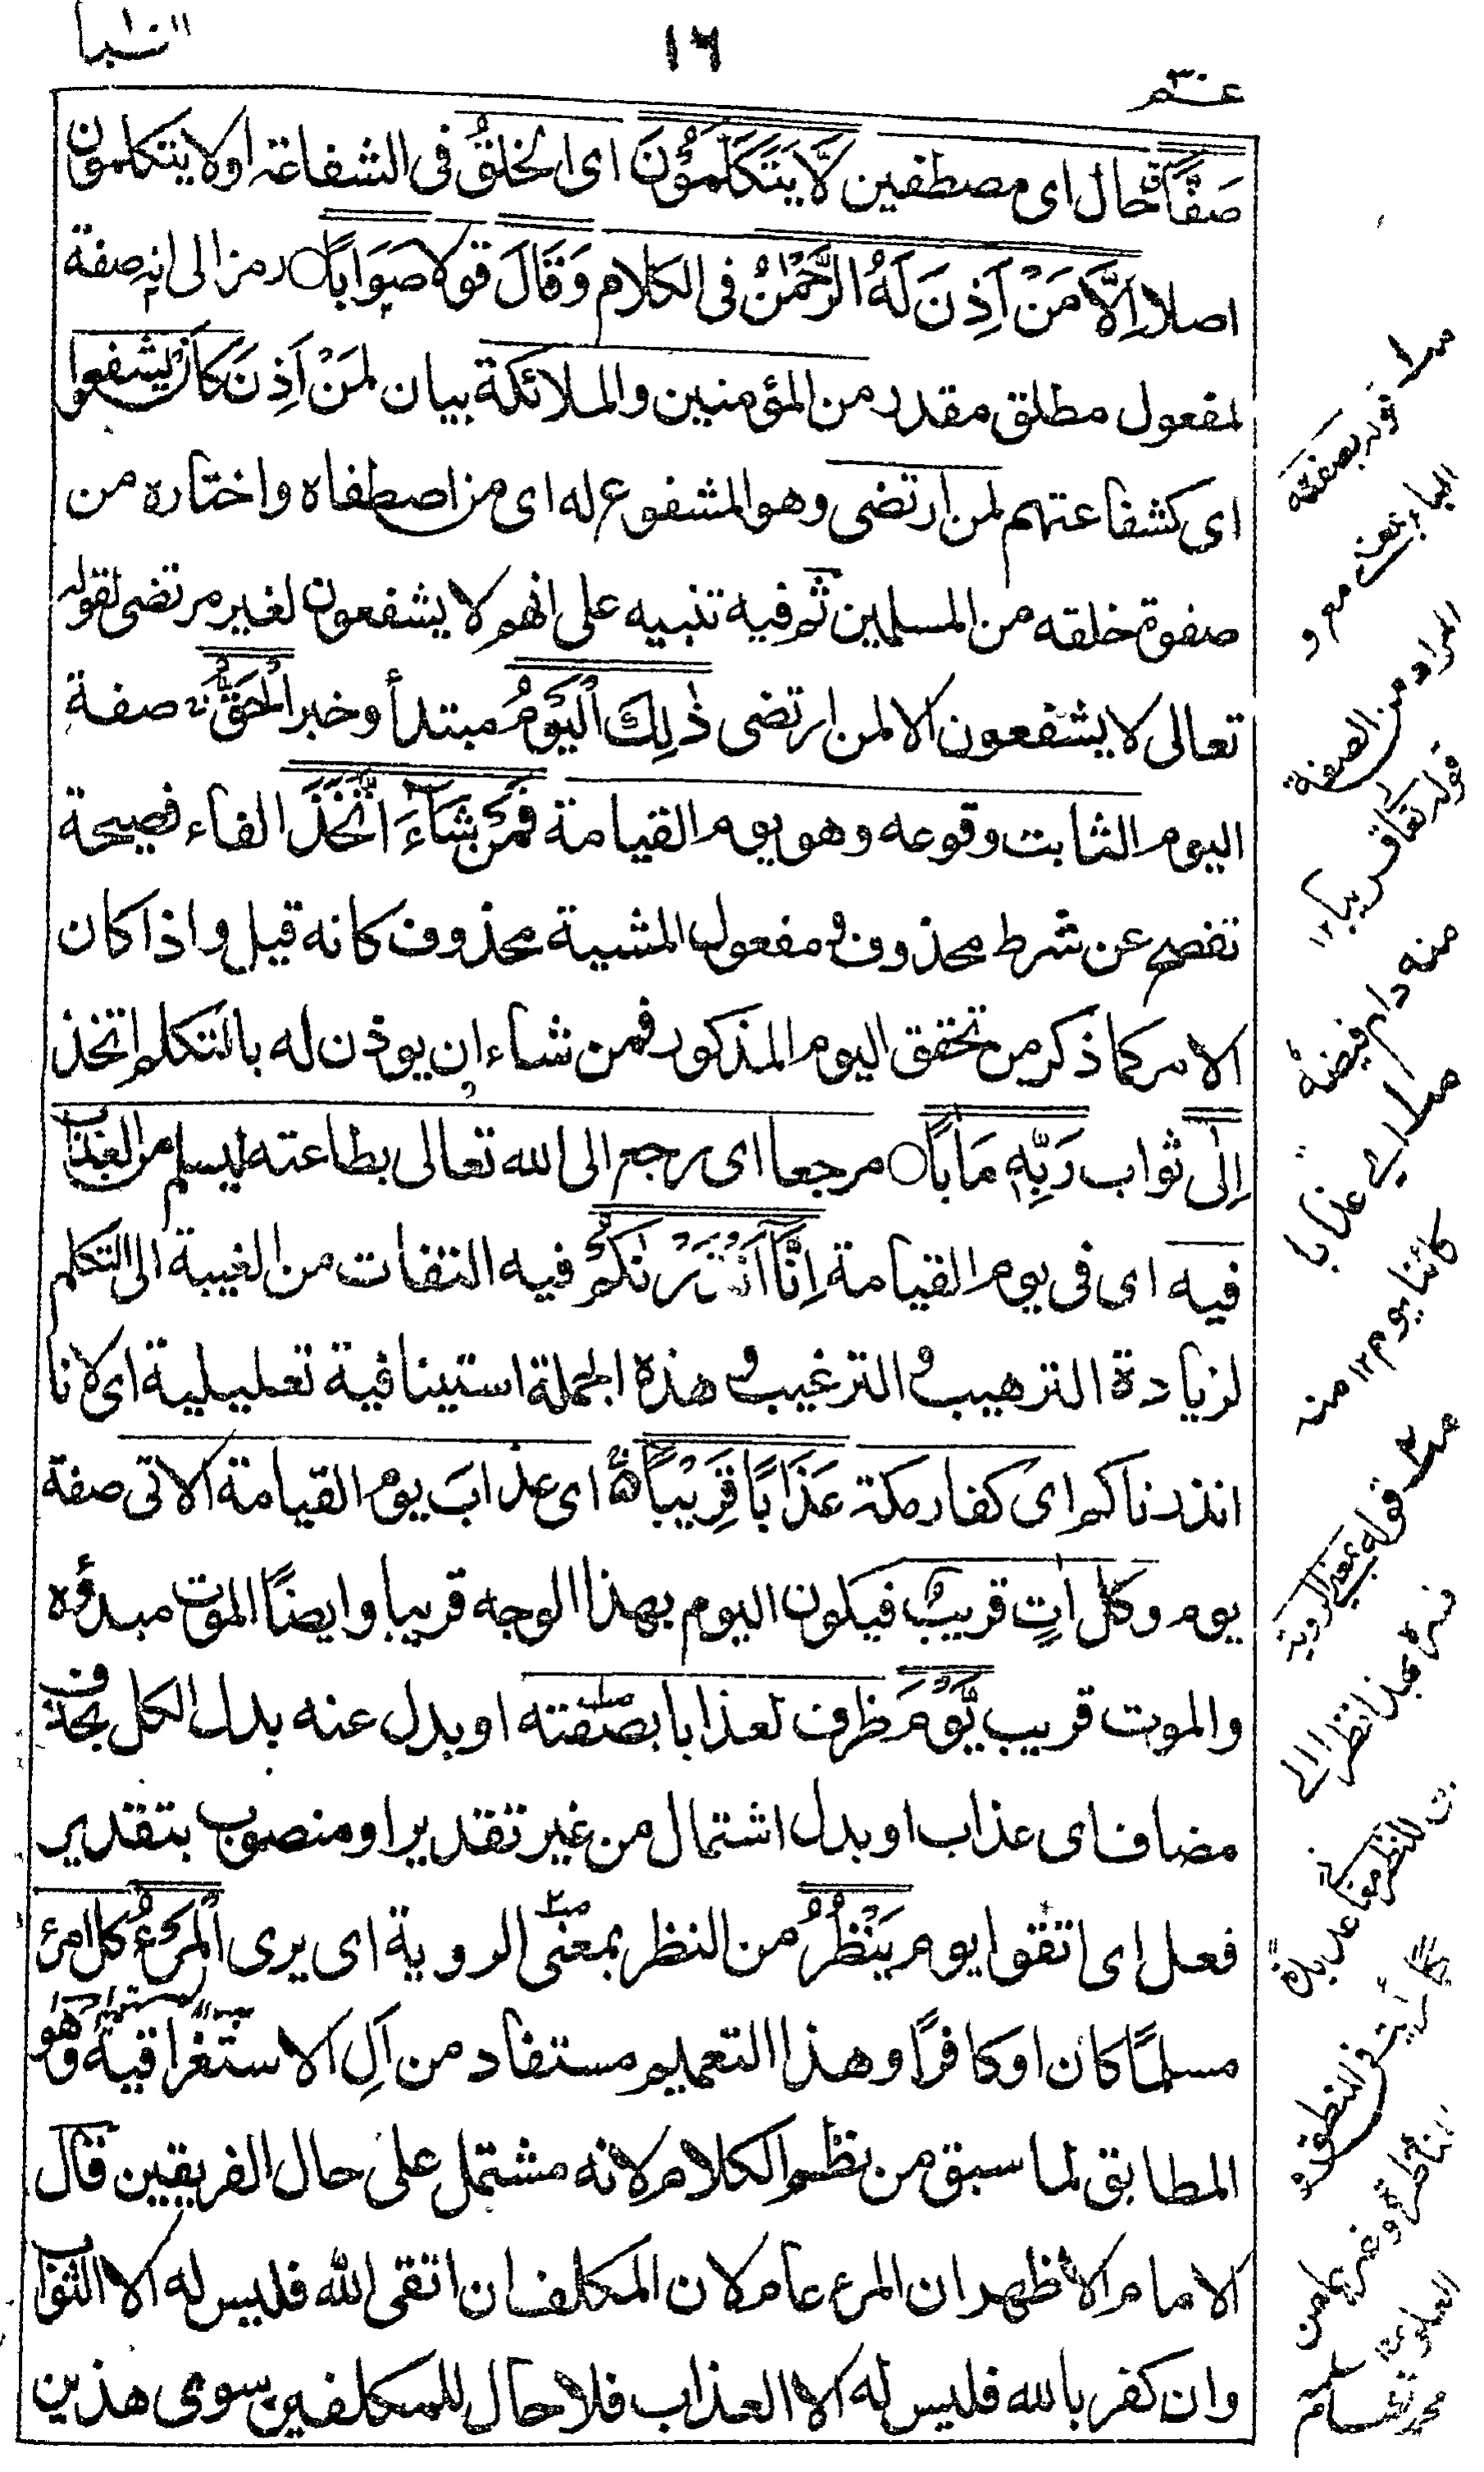 النبأ
١٦
عم
صَفًّا حال اى مصطفين لَّا يَتَكَلَّمُوْنَ اى الخلقُ فى الشفاعة او لا يتكلمون
اصلا اِلَّا مَنْ اَذِنَ لَهُ الرَّحْمٰنُ فى الكلام وَقَالَ قولا صَوَابًا رمز الى انه صفة
لمفعول مطلق مقدر من المؤمنين والملائكة بيان لمَنْ اَذِنَ كأن يشفعوا
اى كشفاعتهم لمن ارتضى وهو المشفوع له اى من اصطفاه واختاره من
صفوة خلقه من المسلمين ثم فيه تنبيه على انهم لا يشفعون لغير مرتضى لقوله
تعالى لا يشفعون الا لمن ارتضى ذٰلِكَ الْيَوْمُ مبتدأ وخبر الْحَقُّ صفة
اليوم الثابت وقوعه وهو يوم القيامة فَمَنْ شَآءَ اتَّخَذَ الفاء فصيحة
تفصح عن شرط محذوف و مفعول المشية محذوف كانه قيل و اذا كان
الامر كما ذكر من تحقق اليوم المذكور فمن شاء ان يوذن له بالتكلم اتخذ
اِلٰى ثواب رَبِّهٖ مَاٰبًا مرجعا اى رجع الى الله تعالى بطاعته ليسلم من العذاب
فيه اى فى يوم القيامة اِنَّآ اَنْذَرْنٰكُمْ فيه التفات من الغيبة الى التكلم
لزيادة الترهيب و الترغيب و هذه الجملة استينافية تعليلية اى لانا
انذرناكم اى كفار مكة عَذَابًا قَرِيْبًا اى عذابَ يوم القيامة الاتى صفة
يوم وكل اٰتٍ قريبٌ فيكون اليوم بهذا الوجه قريبا وايضًا الموت مبدؤه
والموت قريب يَّوْمَ ظرف لعذابا بصفته او بدل عنه بدل الكل بحذف
مضاف اى عذاب او بدل اشتمال من غير تقدير او منصوب بتقدير
فعل اى اتقوا يوم يَنْظُرُ من النظر بمعنى الروية اى يرى الْمَرْءُ كل امرئ
مسلمًا كان او كافرًا و هذا التعميم مستفاد من اَلِ الاستغراقية وهو
المطابق لما سبق من نظم الكلام لانه مشتمل على حال الفريقين قال
الامام الاظهر ان المرء عام لان المكلف ان اتقى الله فليس له الا الثواب
وان كفر بالله فليس له الا العذاب فلا حال للمكلفين سوى هذين
قوله بصفته
المراد من الصفة
قوله تعالى قريبا ١٢
منه دام فيضه
اى عذابا
كائنا يوم ١٢ منه
قوله بمعنى الروية